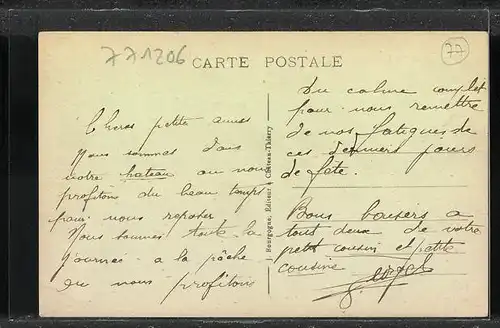 771206
CARTE POSTALE
77
Chères petites amies
Nous sommes dans
notre bateau ou nous
profitons du beau temps
pour nous reposer
Nous sommes toute la
journee a la pêche
ou nous profitons
J. Bourgogne, Éditeur à Château-Thierry
Du calme complet
pour nous remettre
de nos fatigues de
ces derniers jours
de fête.
Bons baisers a
tous deux de votre
petit cousin et petite
cousine